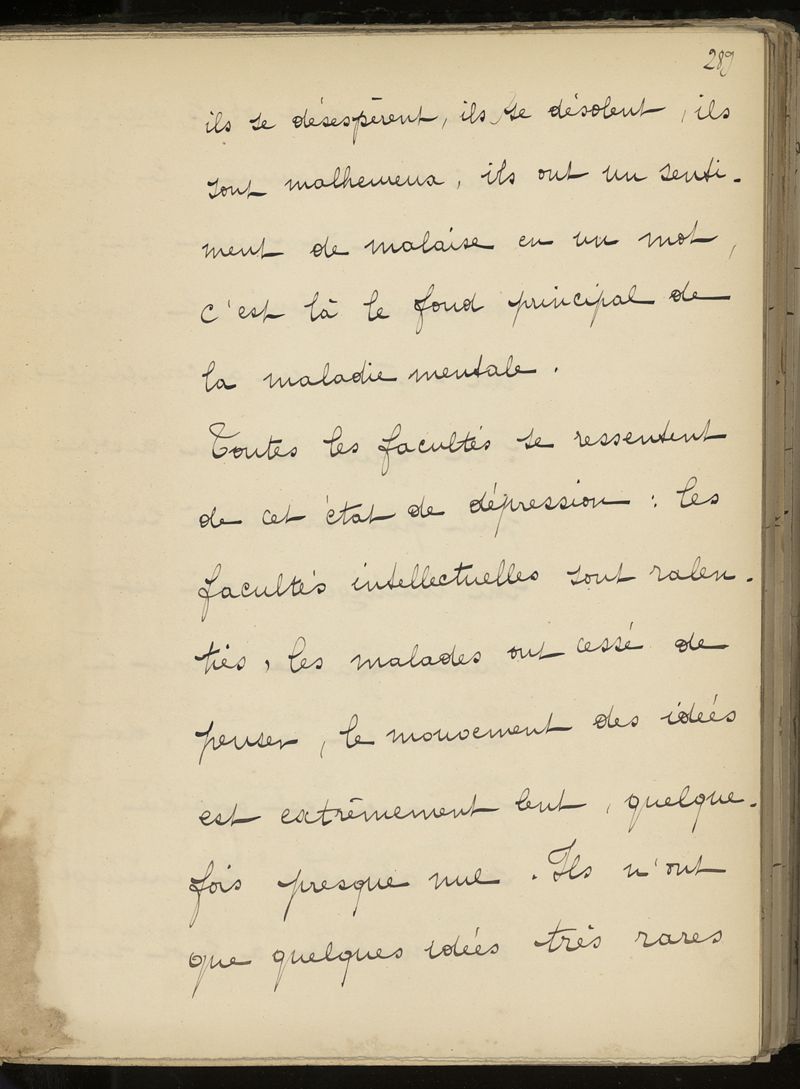 289
ils se désespèrent, ils se désolent, ils
sont malheureux, ils ont un senti-
ment de malaise en un mot,
c'est là le fond principal de
la maladie mentale.
Toutes les facultés se ressentent
de cet état de dépression : les
facultés intellectuelles sont ralen-
ties, les malades ont cessé de
penser, le mouvement des idées
est extrêmement lent, quelque-
fois presque nul. Ils n'ont
que quelques idées très rares